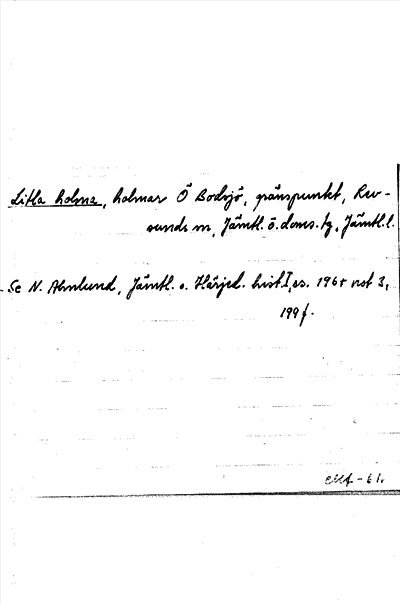 Litla holma, holmar Ö Bodsjö, gränspunkt, Rev-
sunds sn, Jämtl. ö. doms. tg, Jämtl. l.
Se N. Ahnlund, Jämtl. o. Härjed. hist. I, ss. 196 + not 3,
199 f.
-61.